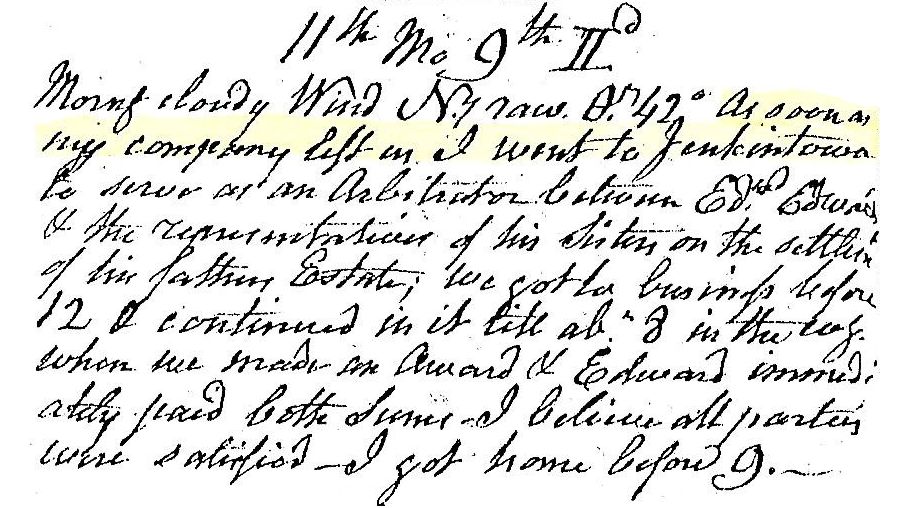 11th Mo 9th IId
Morng cloudy Wind N.y raw. Θ.r 42° As soon as
my company left us I went to Jenkintown
to serve as an Arbitrator between Edwd Edwards
& the representatives of his Sisters on the settlin
of his fathers Estate; we got to business before
12 & continued in it till abt 8 in the evg.
when we made an Award & Edward immedi
ately paid both Sums - I believe all parties
were satisfied - I got home before 9. -